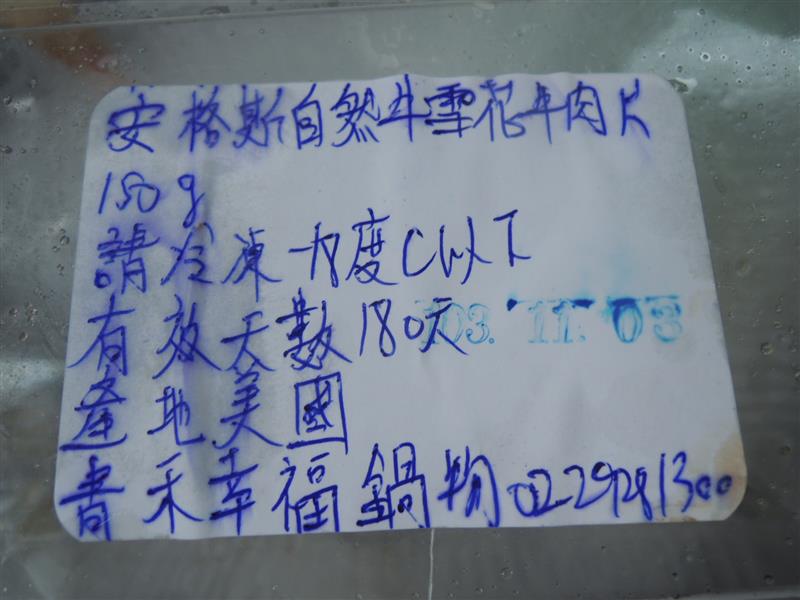 安格斯自然牛雪花牛肉片
150g
請冷凍-18度C以下
有效天數180天
103.11.03
產地美國
書禾幸福鍋物 0229281300